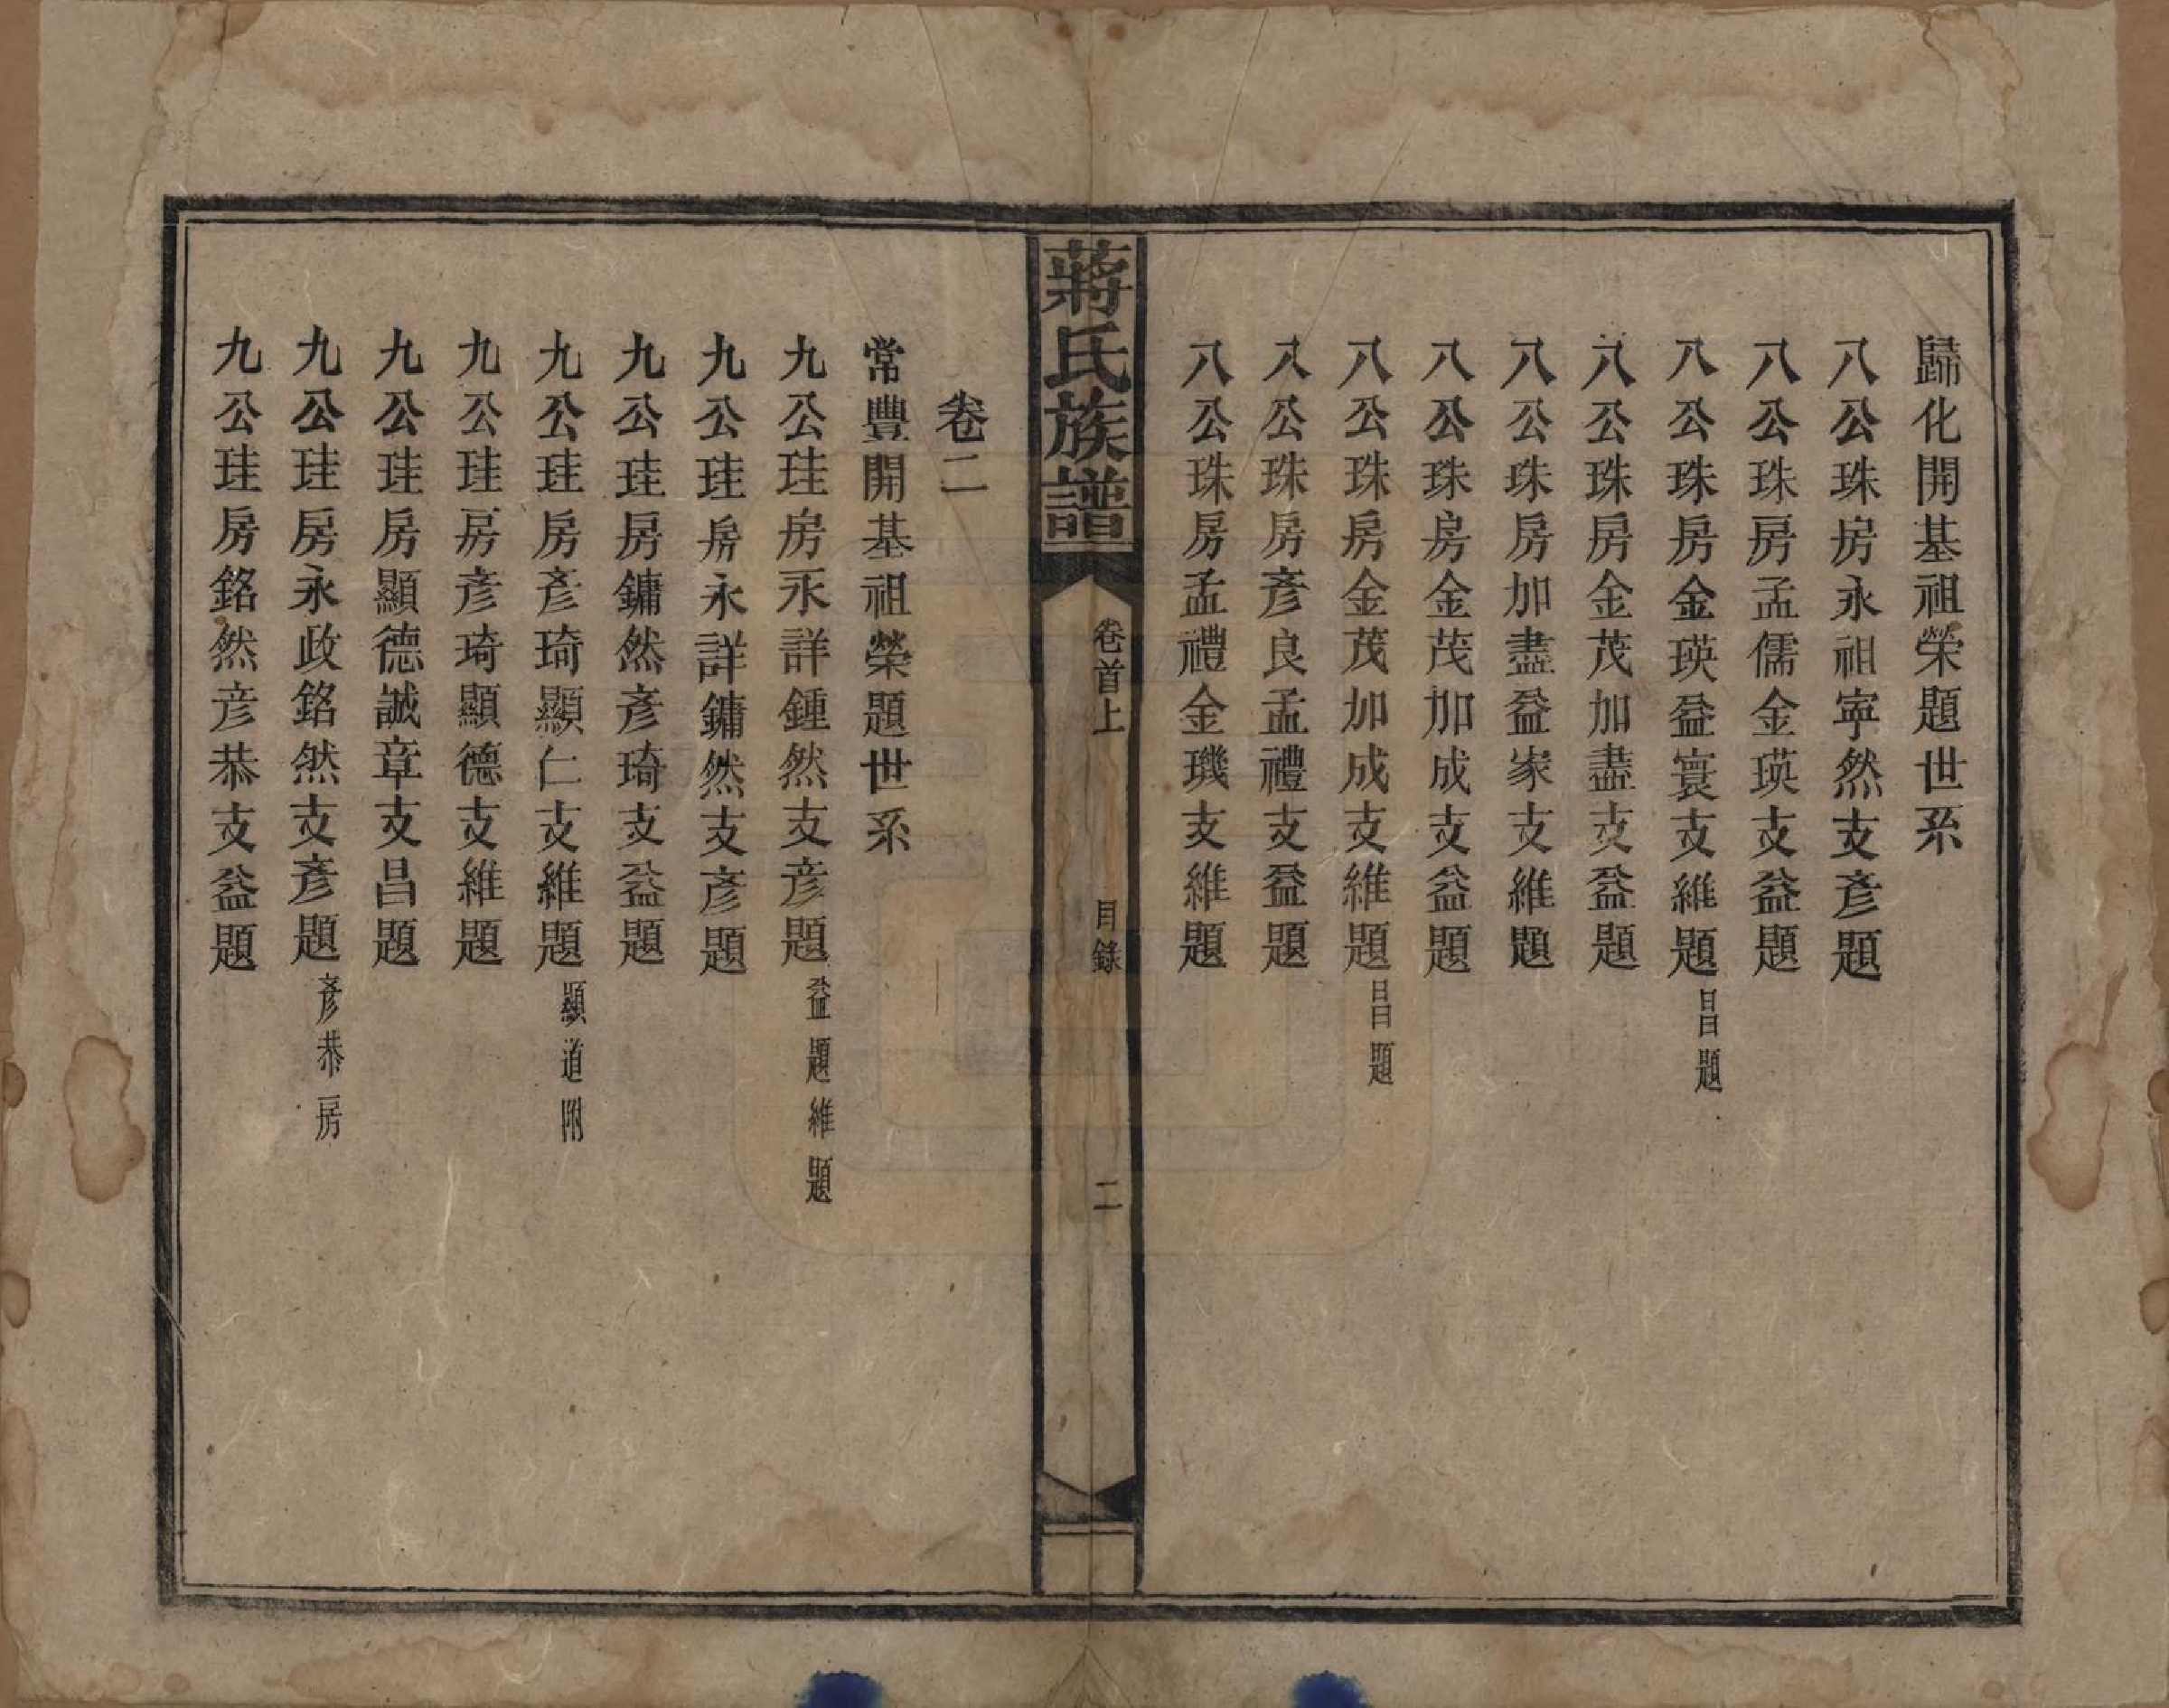 歸化開基祖榮題世系
八公珠房永祖寧然支彥題
八公珠房孟儒金瑛支益題
八公珠房金瑛益寰支維題昌題
八公珠房金茂加盡支益題
八公珠房加盡益家支維題
八公珠房金茂加成支益題
八公珠房金茂加成支維題昌題
八公珠房彥良孟禮支益題
八公珠房孟禮金璣支維題
蔣氏族譜
卷首上
目錄
二
卷二
常豐開基祖榮題世系
九公珪房永詳鍾然支彥題益題維題
九公珪房永詳鏞然支彥題
九公珪房鏞然彥琦支益題
九公珪房彥琦顯仁支維題顯道附
九公珪房彥琦顯德支維題
九公珪房顯德誠章支昌題
九公珪房永政銘然支彥題彥恭房
九公珪房銘然彥恭支益題